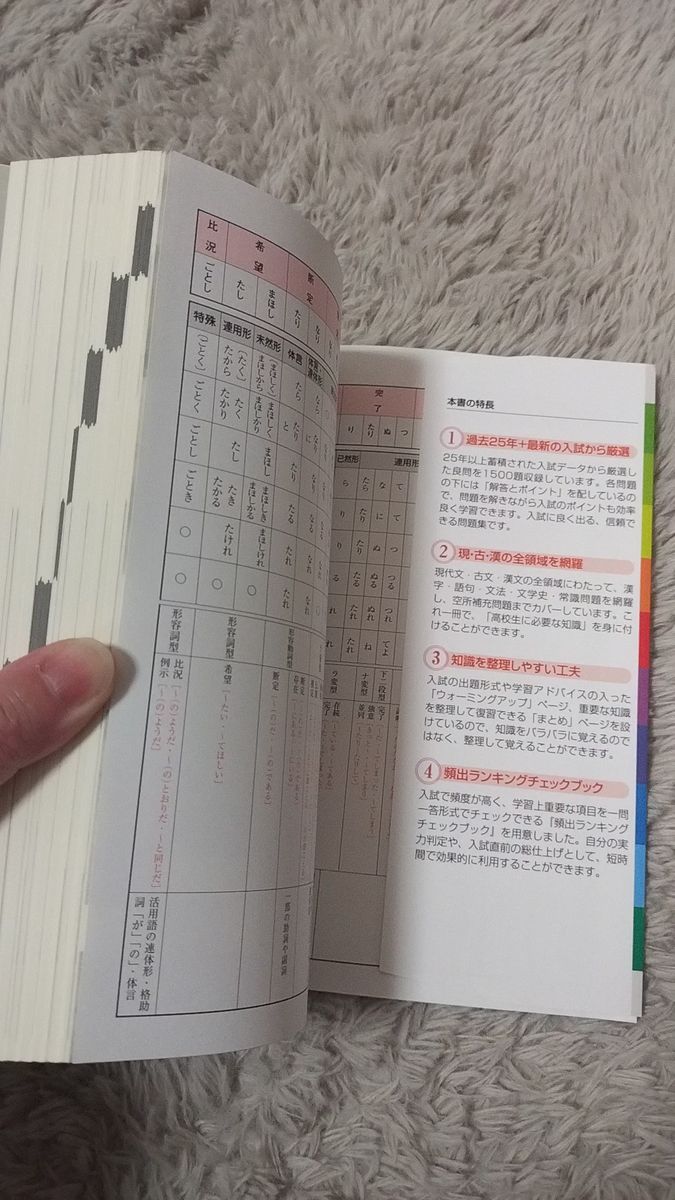 本書の特長
1 過去25年+最新の入試から厳選
25年以上蓄積された入試データから厳選し
た良問を1500題収録しています。各問題
の下には「解答とポイント」を配しているの
で、問題を解きながら入試のポイントも効率
良く学習できます。入試に良く出る、信頼で
きる問題集です。
2 現・古・漢の全領域を網羅
現代文・古文・漢文の全領域にわたって、漢
字・語句・文法・文学史・常識問題を網羅
し、空所補充問題までカバーしています。こ
れ一冊で、「高校生に必要な知識」を身に付
けることができます。
3 知識を整理しやすい工夫
入試の出題形式や学習アドバイスの入った
「ウォーミングアップ」ページ、重要な知識
を整理して復習できる「まとめ」ページを設
けているので、知識をバラバラに覚えるので
はなく、整理して覚えることができます。
4 頻出ランキングチェックブック
入試で頻度が高く、学習上重要な項目を一問
一答形式でチェックできる『頻出ランキング
チェックブック』を用意しました。自分の実
力判定や、入試直前の総仕上げとして、短時
間で効果的に利用することができます。
完了
つ
ぬ
たり
り
連用形
已然形
て
な
たら
ら
て
に
たり
り
つ
ぬ
たり
り
つる
ぬる
たる
る
つれ
ぬれ
たれ
れ
てよ
ね
たれ
れ
下二段型
ナ変型
ラ変型
完了
強意
並列
存続
完了
断定
なり
たり
体言
連体形
体言
なら
なり
に
なり
なる
なれ
たら
たり
と
たり
たる
たれ
たれ
形容動詞型
断定
断定〔~だ・~である〕
希望
まほし
たし
未然形
連用形
(まほしく)
まほしから
まほしく
まほしかり
まほし
まほしき
まほしかる
まほしけれ
○
(たく)
たから
たく
たかり
たし
たき
たかる
たけれ
○
形容詞型
希望〔~たい・~てほしい〕
一部の助詞や副詞
比況
ごとし
特殊
(ごとく)
ごとく
ごとし
ごとき
○
○
形容詞型
比況〔~(の)ようだ・~(の)とおりだ・~と同じだ〕
例示〔~(の)ようだ〕
活用語の連体形・格助
詞「が」「の」・体言